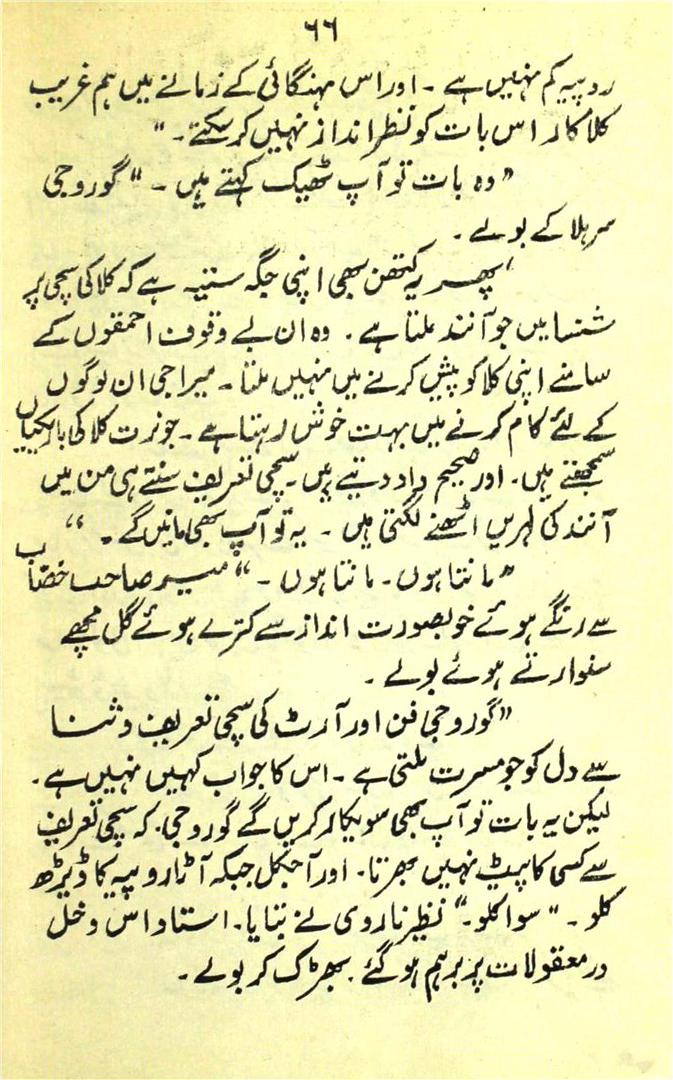 ۶۶
روپیہ کم نہیں ہے ۔ اور اس مہنگائی کے زمانے میں ہم غریب
کلا کار اس بات کو نظر انداز نہیں کر سکتے ۔ "
"وہ بات تو آپ ٹھیک کہتے ہیں ۔ " گورو جی
سر ہلا کے بولے ۔
"پھر یہ کتھن بھی اپنی جگہ ستیہ ہے کہ کلا کی سچی پر
شنسا میں جو آنند ملتا ہے ۔ وہ ان بے وقوف احمقوں کے
سامنے اپنی کلا کو پیش کرنے میں نہیں ملتا ۔ میرا جی ان لوگوں
کے لئے کام کرنے میں بہت خوش رہتا ہے ۔ جو نرت کلا کی باریکیاں
سمجھتے ہیں ۔ اور صحیح داد دیتے ہیں ۔ سچی تعریف سنتے ہی من میں
آنند کی لہریں اٹھنے لگتی ہیں ۔ یہ تو آپ بھی مانیں گے ۔ "
"مانتا ہوں ۔ مانتا ہوں ۔ " میر صاحب خضاب
سے رنگے ہوئے خوبصورت انداز سے کترے ہوئے گل مچھے
سنوارتے ہوئے بولے ۔
"گورو جی فن اور آرٹ کی سچی تعریف و ثنا
سے دل کو جو مسرت ملتی ہے ۔ اس کا جواب کہیں نہیں ہے ۔
لیکن یہ بات تو آپ بھی سویکار کریں گے گورو جی ۔ کہ سچی تعریف
سے کسی کا پیٹ نہیں بھرتا ۔ اور آجکل جبکہ آٹا روپیہ کا ڈیڑھ
کلو ۔ " سوا کلو ۔ " نظیر ناروی نے بتایا ۔ استاد اس دخل
در معقولات پر برہم ہو گئے ۔ بھڑک کر بولے ۔